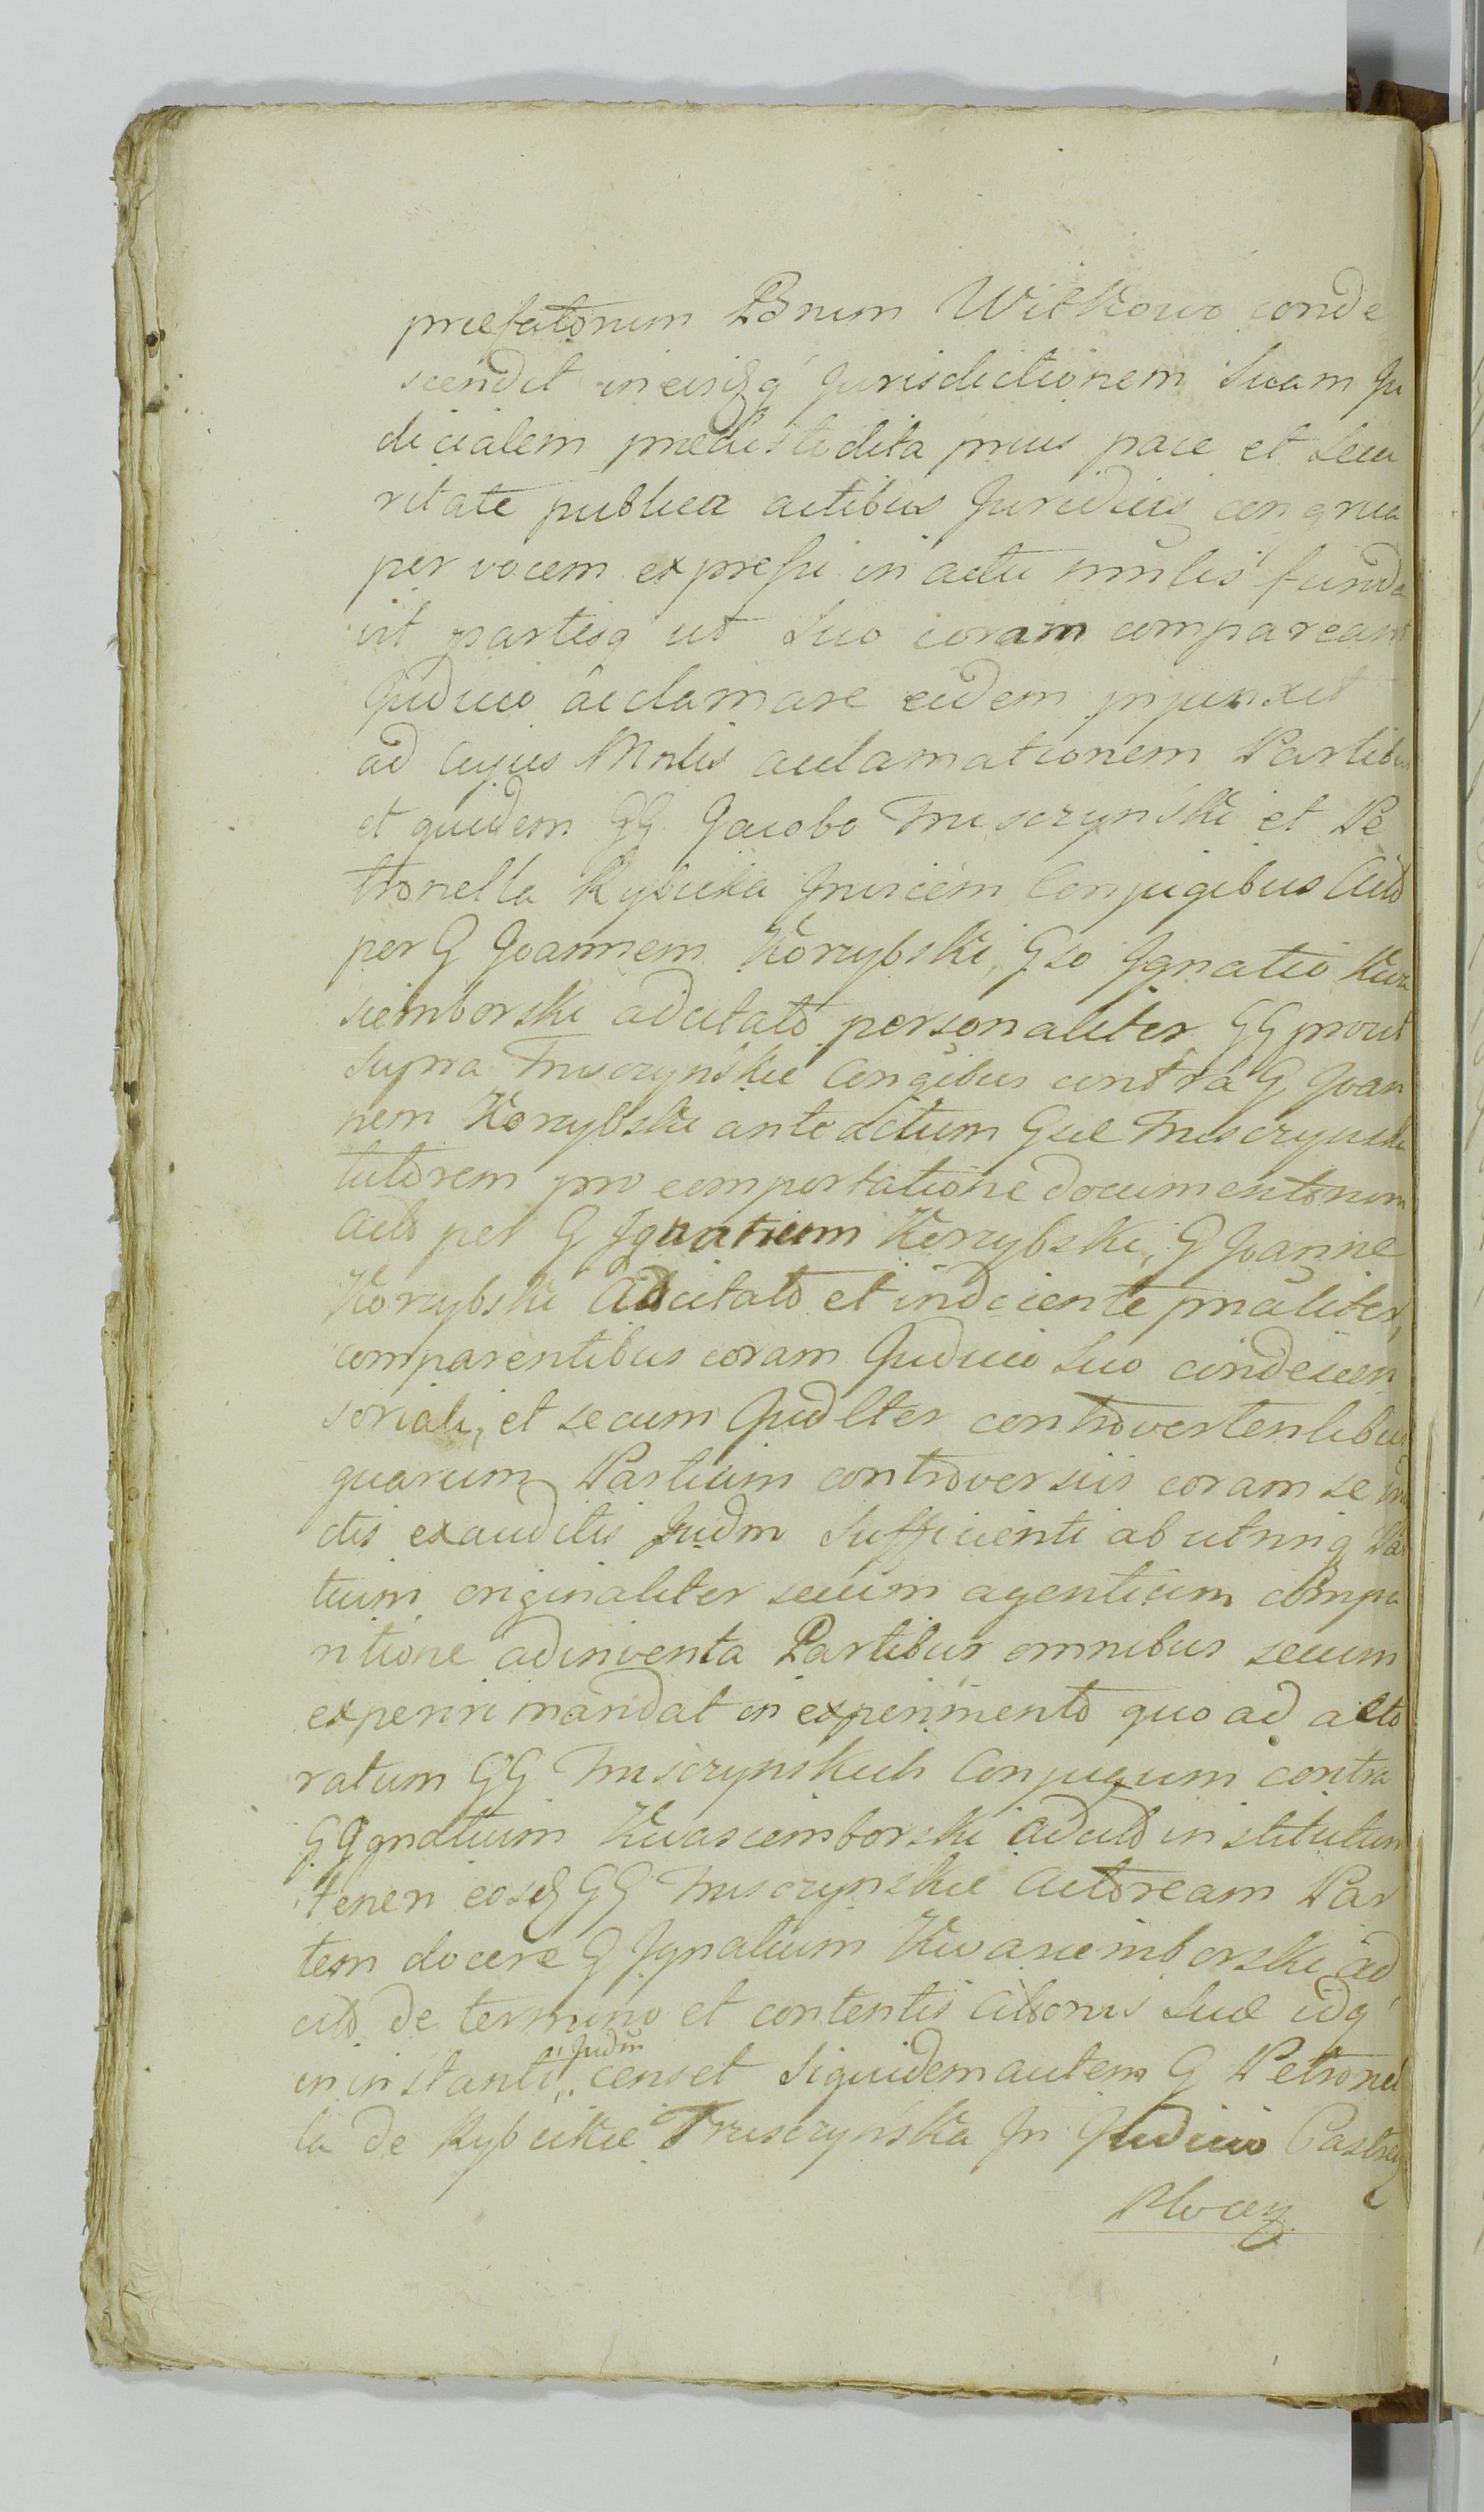 præfatorum Bnum Witkowo conde
scendit in eisq́ Jurisdictionem Suam Ju
dicialem prædicti dita prius pace et Secu
ritate publica actibus Juridicis congrua
per vocem expressi in actu mnlis funda
vit partesq́ ut Suo coram compareant
Judicio acclamare eidem injunxit
ad cujus Mnlis acclamationem Partibus
et quidem GG Jacobo Trusczynski et Pe
tronella Rybicka Invicem Conjugibus Acto
per G Joannem Korzybski, Gso Ignatio Kwa
siemborski adcitato personaliter GG prout
Supra Trusczynskie Congibus contra G Joan
nem Korzybski ante actum Gsæ Trusczynski
tutorem pro comportatione documentorum
Acto per G Ignatium Korzybski, G Joanne
Korzybski Adcitato et indiciente prnaliter,
comparentibus coram Judicio Suo condescen
soriali, et secum Judlter controvertentibus
quarum Partium controversiis coram se in
ctis exauditis Judm Sufficienti ab utrinq Par
tium originaliter secum agentium compa
ritione adinventa Partibus omnibus secum
experiri mandat in experimento quo ad acto
ratum GG Trusczynskich Conjugum contra
G Ignatium Kwasiemborski adcito institutum
teneri eosd GG Trusczynskie Actoream Par
tem docere G Ignatium Kwasiemborski ad
cito de termino et contentis Citonis Suæ idq́
in instanti, Judm censet Siquidem autem G Petronel
la de Rybickie Trusczynska In Judicio Castren
Plocen